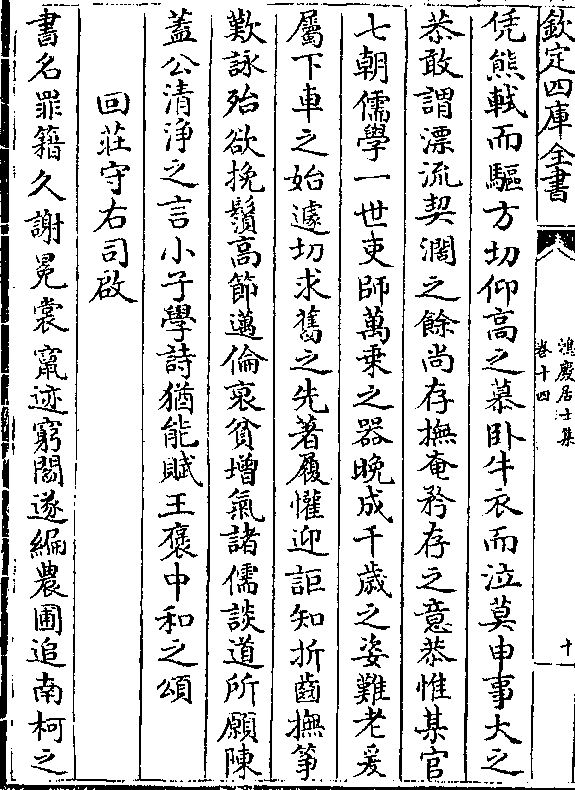 欽定四庫全書
鴻慶居士集
卷十四
十
凭熊軾而驅方切仰高之慕卧牛衣而泣莫申事大之
恭敢謂漂流契濶之餘尚存撫奄矜存之意恭惟某官
七朝儒學一世吏師萬乘之器晚成千歲之姿難老爰
屬下車之始遽切求舊之先著履懽迎詎知折齒撫箏
歎詠殆欲挽鬚高節邁倫裒貧增氣諸儒談道所願陳
蓋公清浄之言小子學詩猶能賦王褒中和之頌
回莊守右司啟
書名罪籍久謝冕裳竄迹窮閻遂編農圃追南柯之